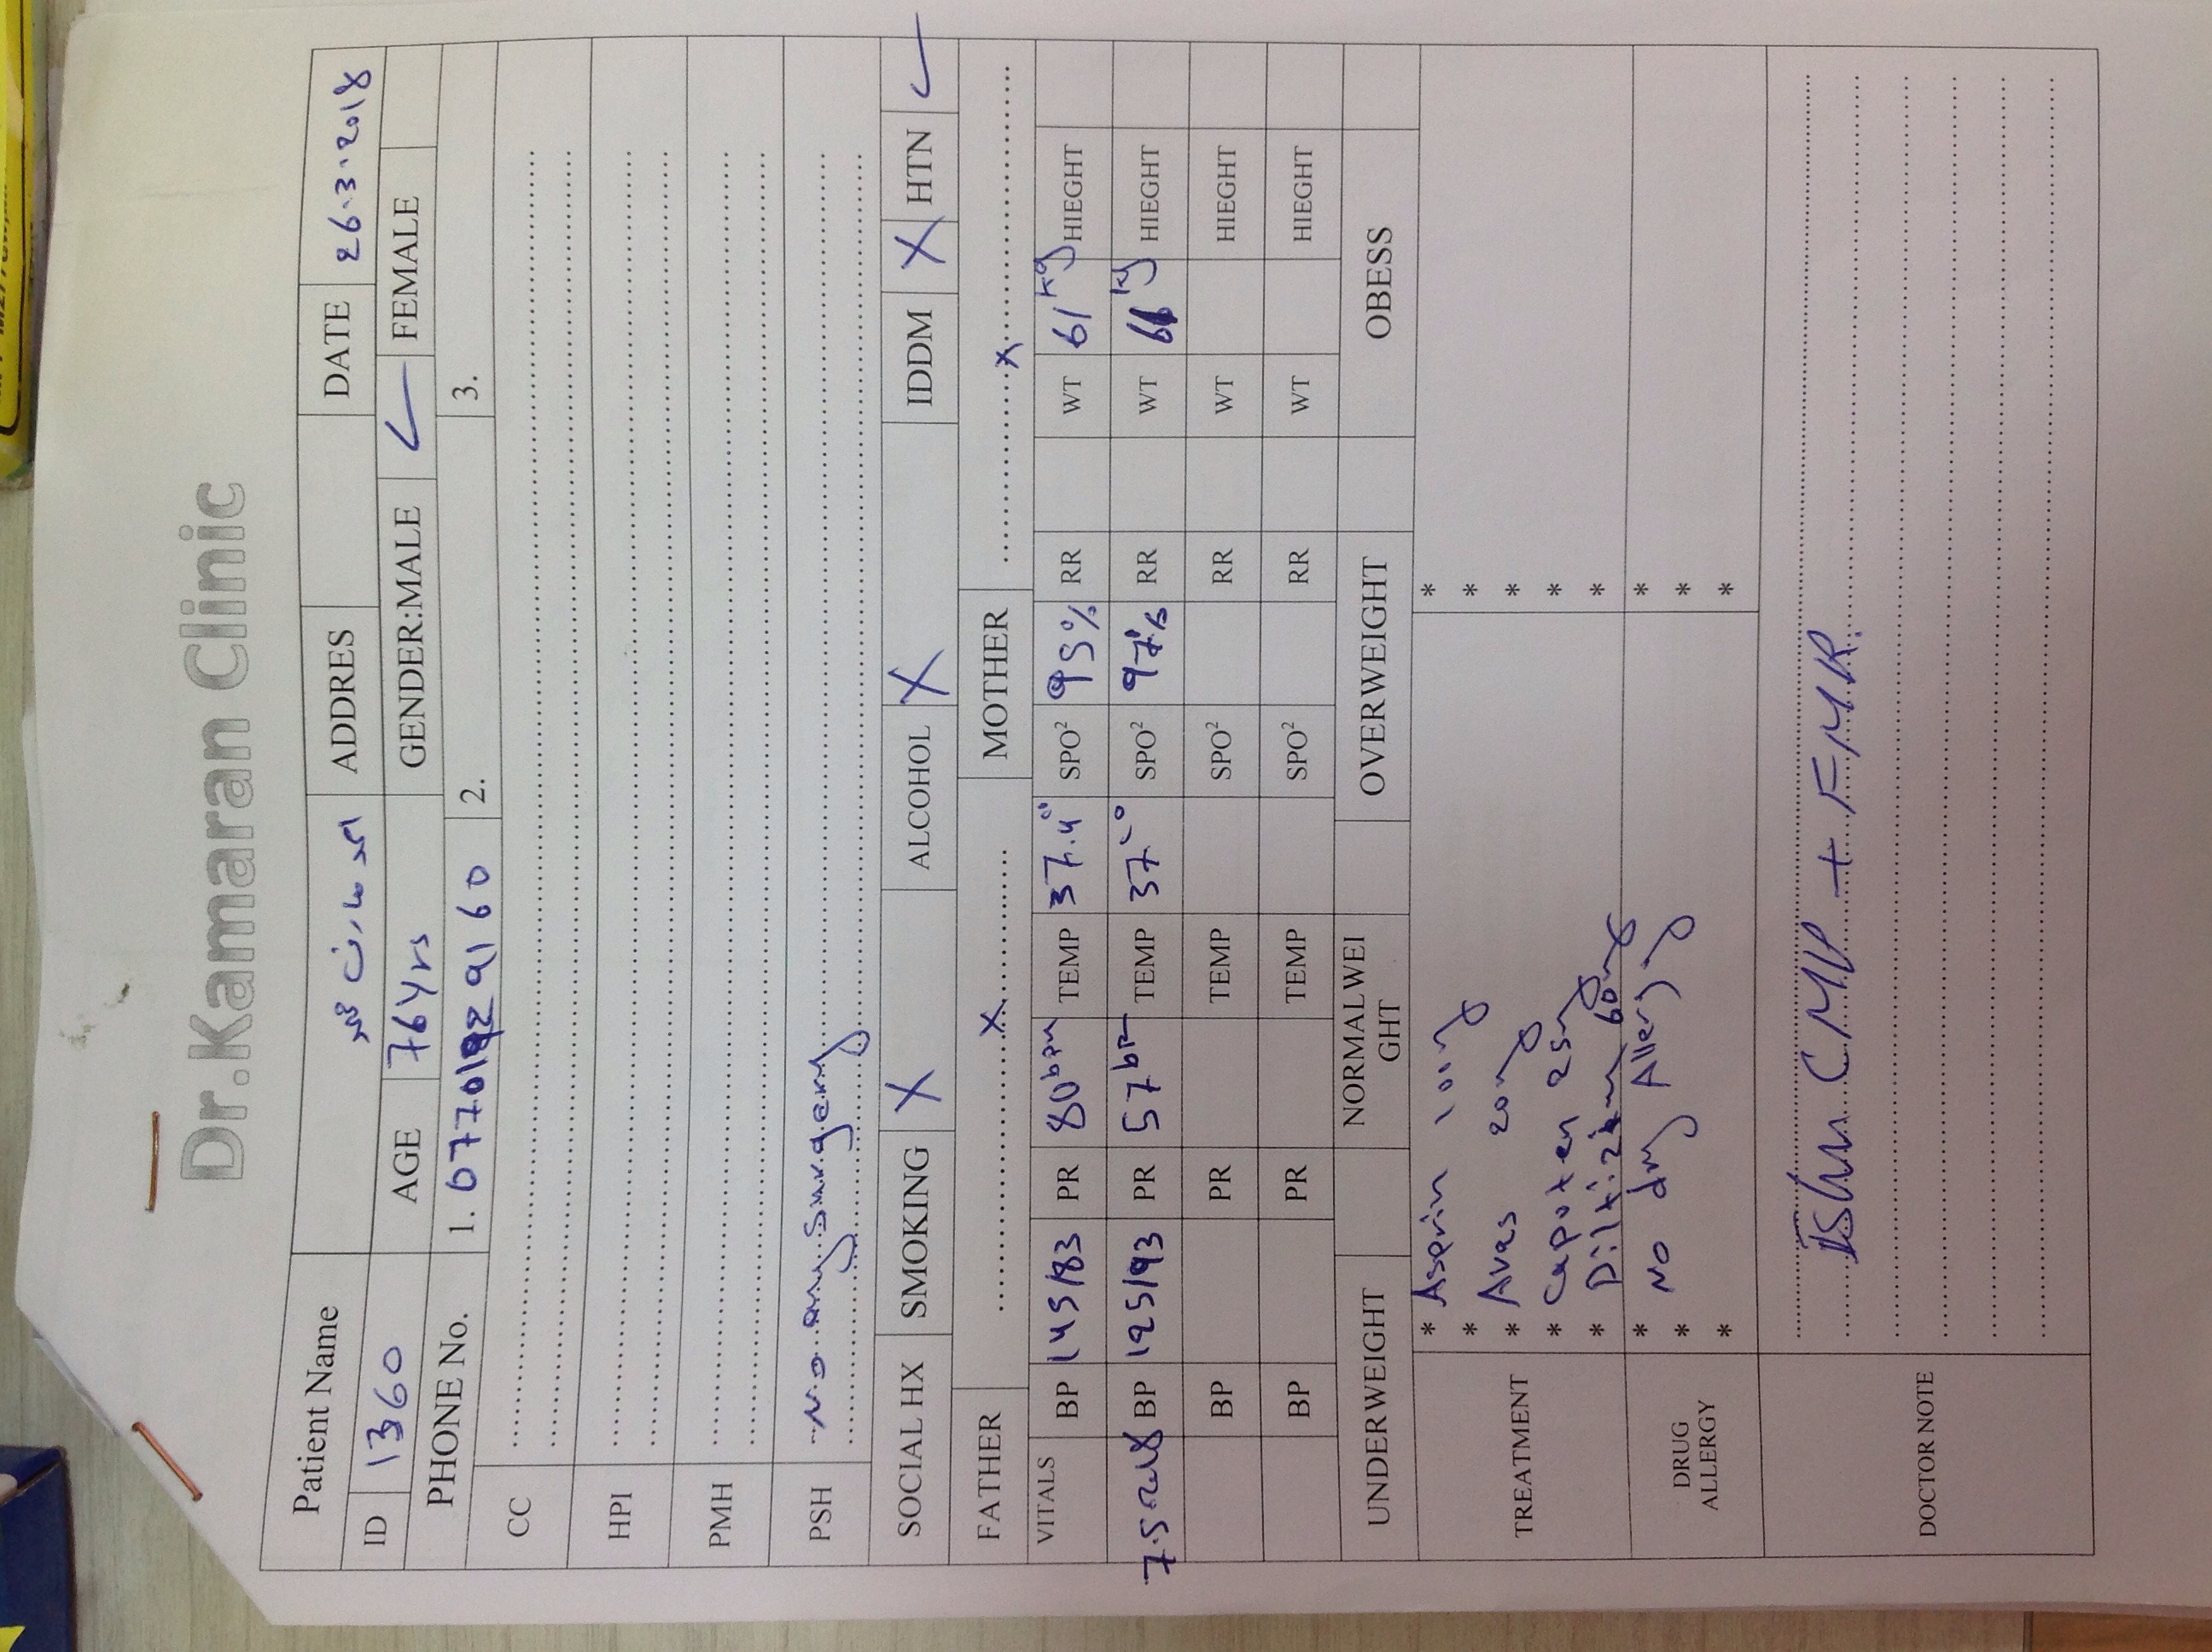 Dr.Kamaran Clinic
Patient Name ADDRES DATE 26.3.2018
ID 1360 AGE 76 yrs GENDER:MALE ✓ FEMALE
PHONE No. 1. 2. 3.
CC
HPI
PMH
PSH No any Surgery
SOCIAL HX SMOKING X ALCOHOL X IDDM X HTN ✓
FATHER X MOTHER X
VITALS BP 145/83 PR 80 bpm TEMP 37.4° SPO² 95% RR WT 61 kg HIEGHT
7.5.2018 BP 125/93 PR 57 TEMP SPO² 97% RR WT HIEGHT
BP PR TEMP SPO² RR WT HIEGHT
BP PR TEMP SPO² RR WT HIEGHT
UNDERWEIGHT NORMALWEI
GHT OVERWEIGHT OBESS
TREATMENT
* Asprin 100mg *
* *
* Avas 20mg *
* Capoten 25mg *
* Diltizim 60mg *
DRUG
ALLERGY
* No drug Allergy *
* *
* *
DOCTOR NOTE
CMP + FMR.